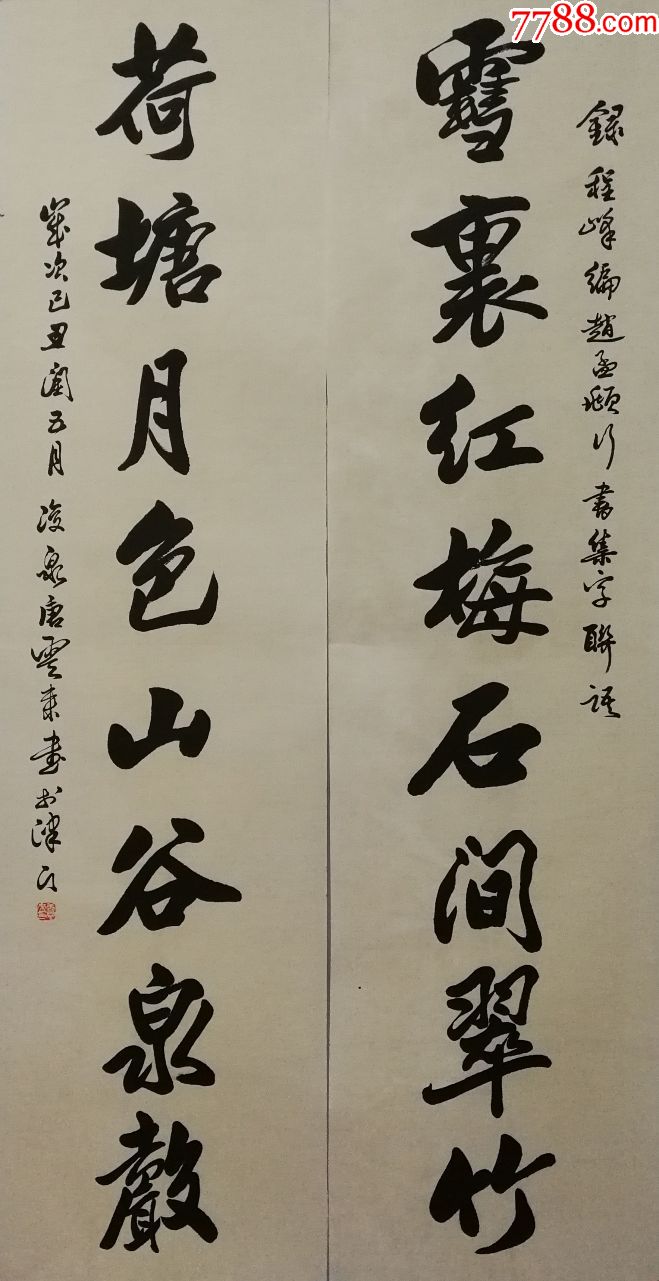 7788.com
錄程峰編趙孟頫行書集字聯語
雪裏紅梅石間翠竹
荷塘月色山谷泉聲
歲次己丑閏五月凌泉唐雲來書於津門